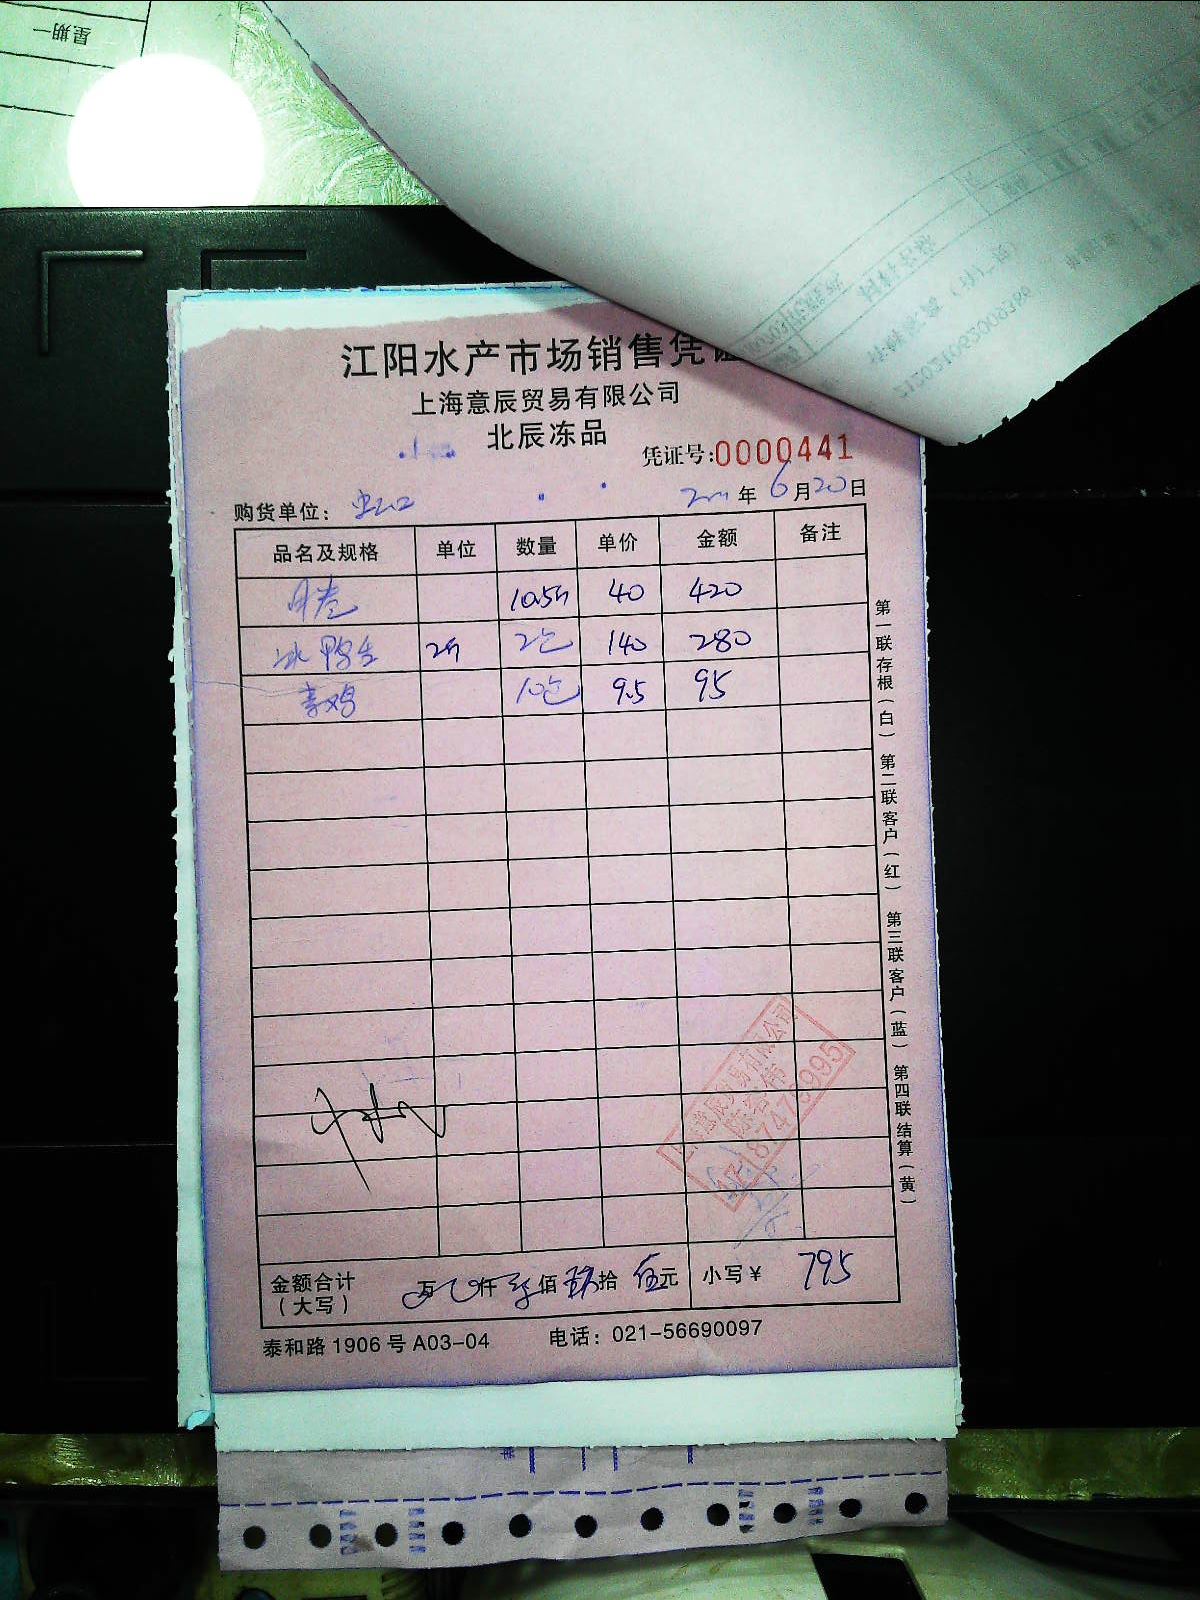 星期一
江阳水产市场销售凭证
上海意辰贸易有限公司
北辰冻品
凭证号:0000441
购货单位: 虹口 年 6月20日
品名及规格 单位 数量 单价 金额 备注
月卷 10.5斤 40 420
冰鸭舌 2斤 2包 140 280
青鸡 10包 9.5 95
金额合计 万 仟 柒佰 玖拾 伍元 小写￥ 795
(大写)
泰和路1906号A03-04 电话: 021-56690097
第一联存根(白) 第二联客户(红) 第三联客户(蓝) 第四联结算(黄)